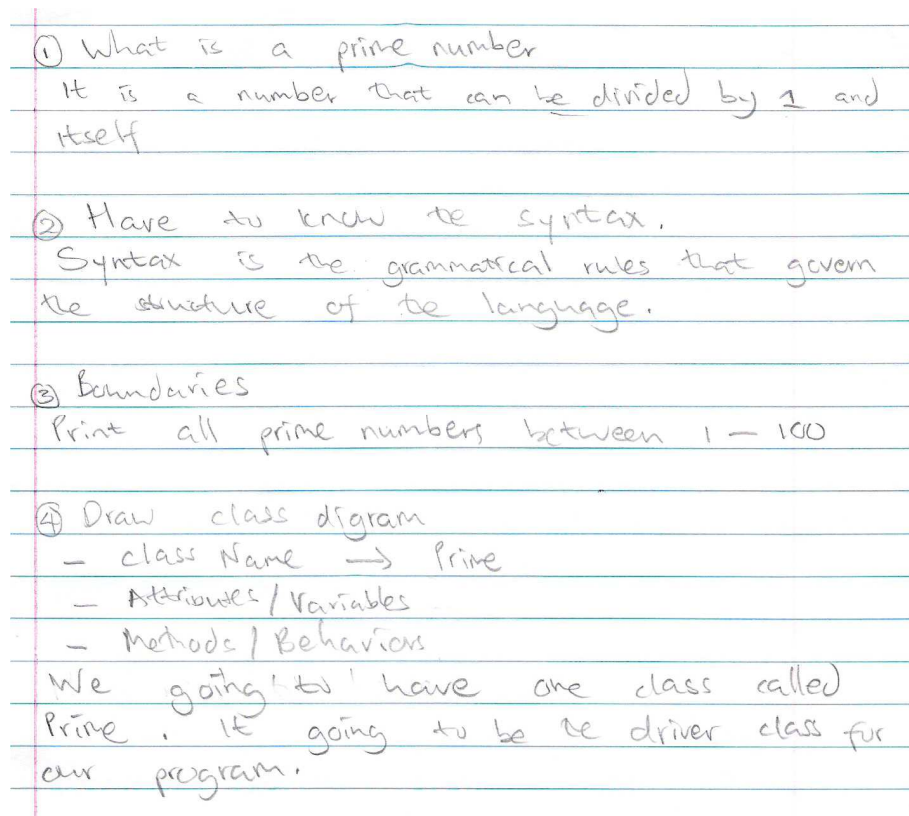 ① What is a prime number
It is a number that can be divided by 1 and
itself
② Have to know te syntax.
Syntax is the grammatical rules that govern
the structure of te language.
③ Boundaries
Print all prime numbers between 1 – 100
④ Draw class digram
– class Name → Prime
– Attributes / Variables
– Methods / Behaviors
We going to have one class called
Prime. It going to be te driver class for
our program.